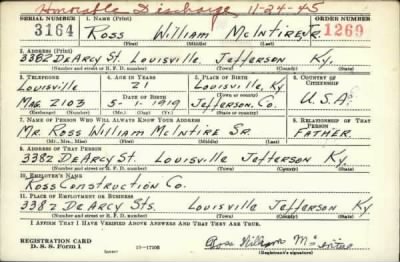 Honorable Discharge 11-24-45
SERIAL NUMBER 1. NAME (Print) ORDER NUMBER
3164 Ross William McIntire Jr. 1269
(First) (Middle) (Last)
2. ADDRESS (Print)
3382 DeArcy St. Louisville, Jefferson Ky.
(Number and street or R. F. D. number) (Town) (County) (State)
3. TELEPHONE 4. AGE IN YEARS 5. PLACE OF BIRTH 6. COUNTRY OF CITIZENSHIP
Louisville 21 Louisville, Ky
DATE OF BIRTH (Town or county)
Mag. 2103 5-1-1919 Jefferson, Co. U.S.A.
(Exchange) (Number) (Mo.) (Day) (Yr.) (State or country)
7. NAME OF PERSON WHO WILL ALWAYS KNOW YOUR ADDRESS 8. RELATIONSHIP OF THAT PERSON
Mr. Ross William McIntire Sr. Father.
(Mr., Mrs., Miss) (First) (Middle) (Last)
9. ADDRESS OF THAT PERSON
3382 DeArcy St. Louisville Jefferson Ky.
(Number and street or R. F. D. number) (Town) (County) (State)
10. EMPLOYER'S NAME
Ross Construction Co.
11. PLACE OF EMPLOYMENT OR BUSINESS
3382 DeArcy Sts. Louisville Jefferson Ky
(Number and street or R. F. D. number) (Town) (County) (State)
I AFFIRM THAT I HAVE VERIFIED ABOVE ANSWERS AND THAT THEY ARE TRUE.
REGISTRATION CARD
D. S. S. Form 1 Ross William McIntire
(Registrant's signature)